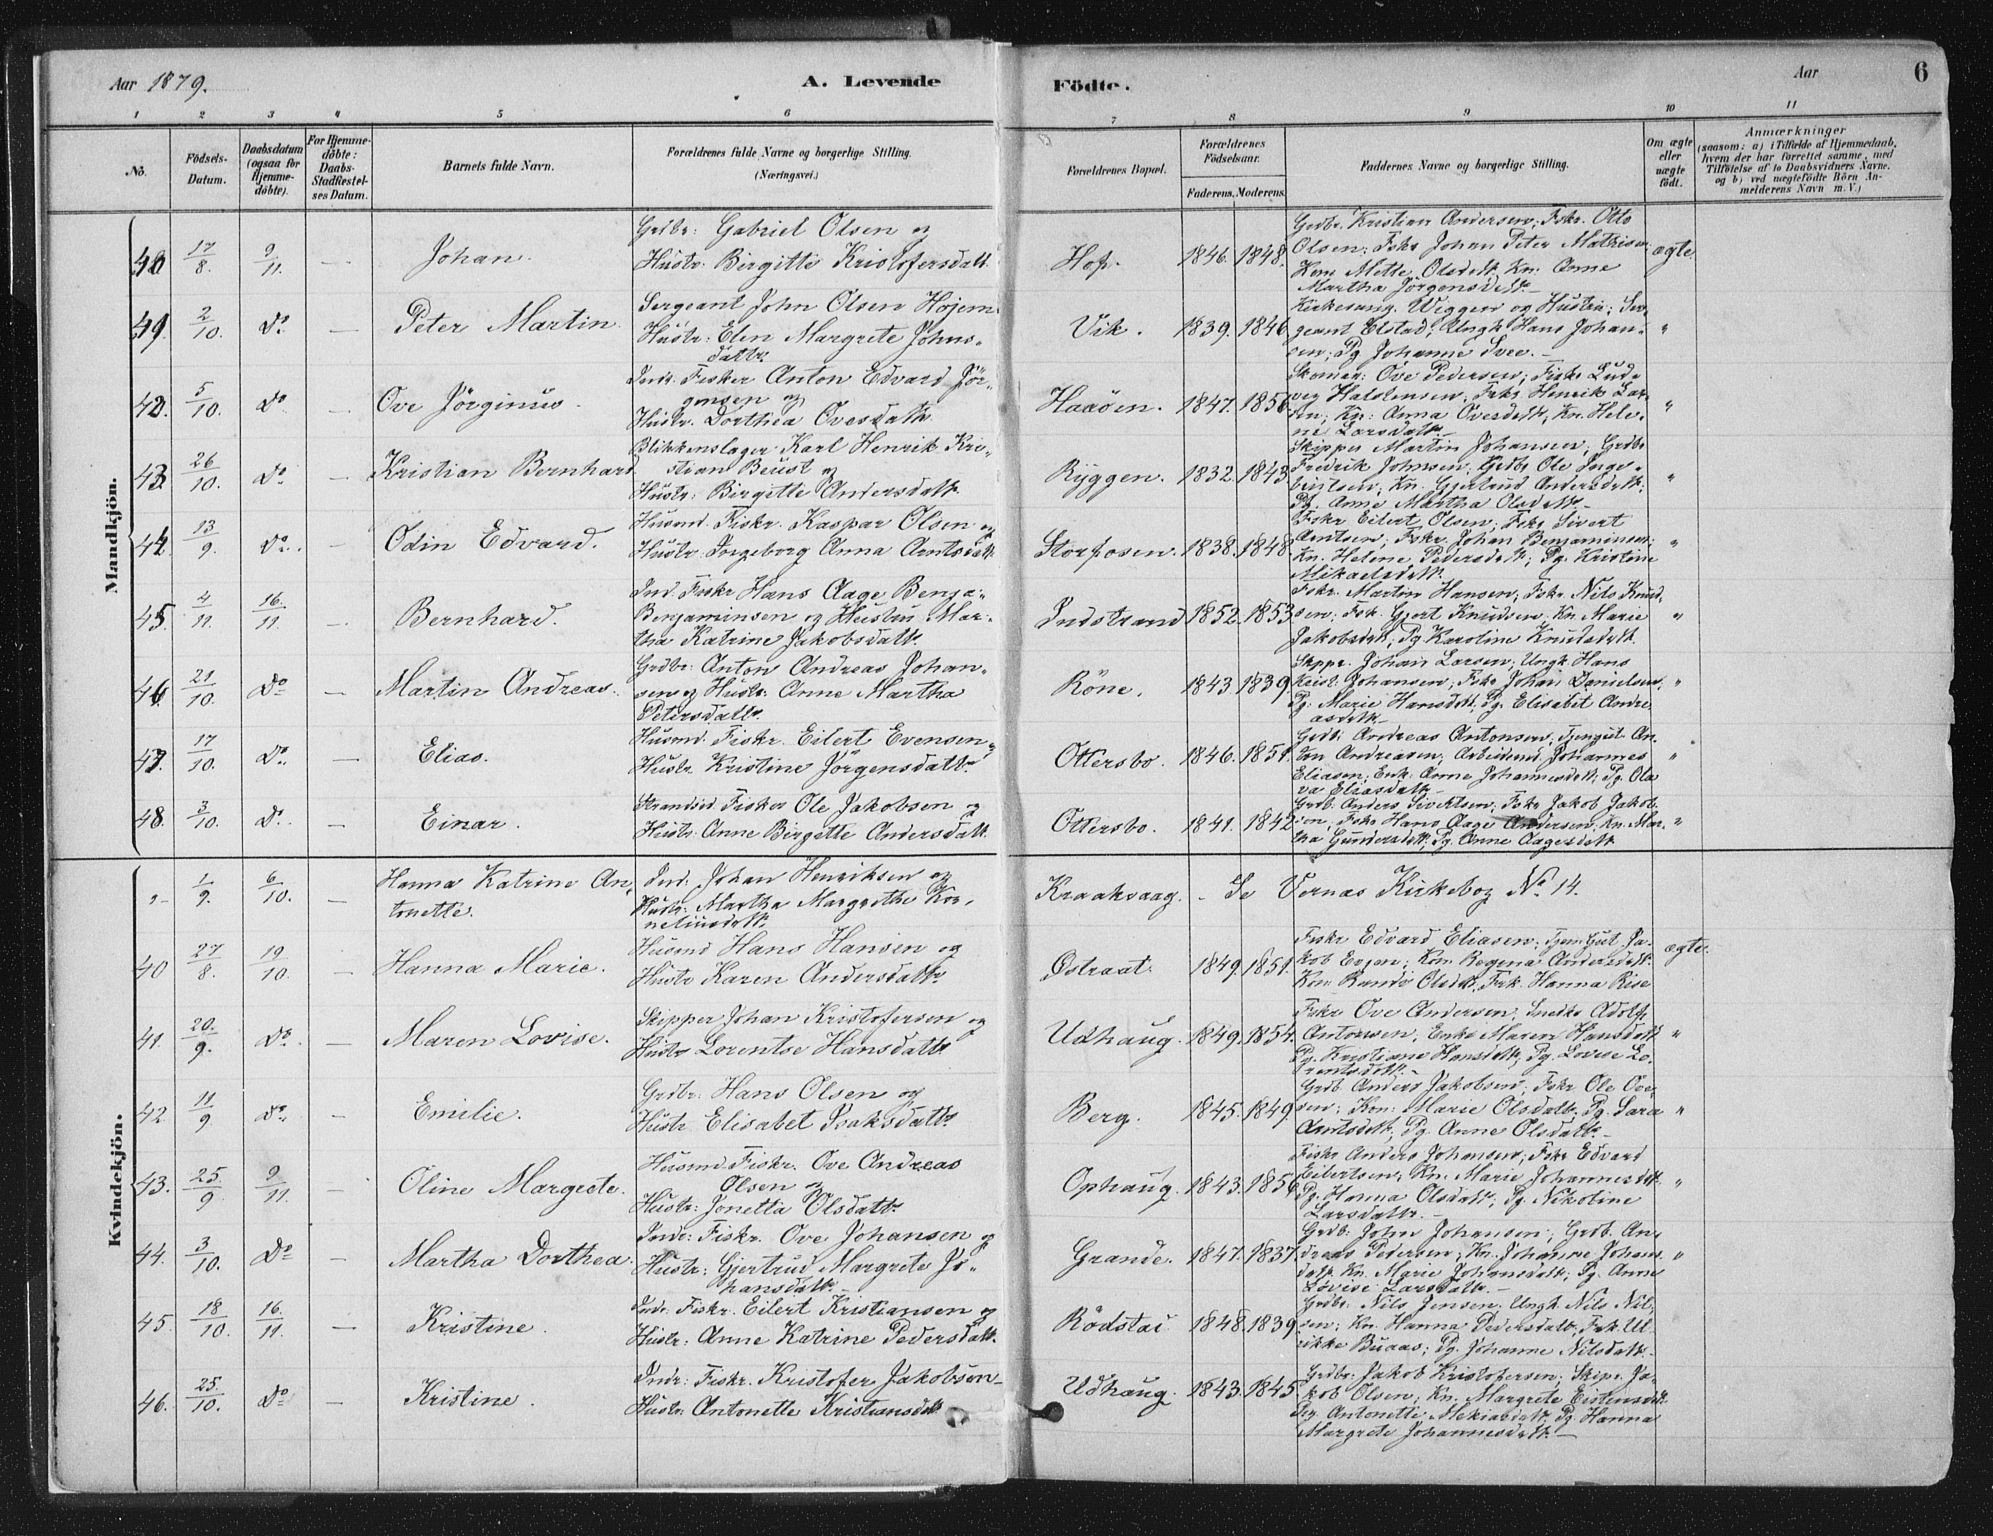 Aar 1879.
A. Levende
Födte.
Aar
6
1 2 3 4 5 6 7 8 9 10 11
No.
Födsels-Datum.
Daabsdatum (ogsaa for Hjemme-döbte).
For Hjemme-döbte: Daabs-Stadfæstel-ses Datum.
Barnets fulde Navn.
Forældrenes fulde Navne og borgerlige Stilling. (Næringsvei.)
Forældrenes Bopæl.
Forældrenes Födselsaar.
Faderens. Moderens.
Faddernes Navne og borgerlige Stilling.
Om ægte eller uægte födt.
Anmærkninger
(saasom: a) i Tilfælde af Hjemmedaab,
hvem der har forrettet samme, med
Tilföielse af to Daabsvidners Navne.
og b) ved uægtefödte Börn An-
melderens Navn m. V.)
Mandkjön.
17/8. 9/11. — Johan.
Grdbr: Gabriel Olsen og
Hustr. Birgitte Kristofersdatt.
Hop. 1846. 1848.
Grdbr. Kristian Andersen; Fskr. Otto
Olsen; Fskr Johan Peter Mathisen
Kone Mette Olsdtt, Kn. Anne
Martha Jörgensdtt.
ægte
2/10. Do — Peter Martin.
Sergeant John Olsen Højem
Hustr: Elen Margrete Johns-
dattr.
Vik. 1839. 1846
Kirkesang. Wiggen og Hustru; Ser-
geant Elstad; Ungk Hans Johan-
sen; Pg Johanne Svee. —
"
5/10. Do — Ove Jörginus.
Indr. Fisker Anton Edvard Jör-
gensen og
Hustr. Dorthea Ovesdatt.
Haaöen. 1847. 1856
Skomar: Ove Pedersen; Fiskr Lud-
vig Halstensen; Fskr Henrik Lar-
sen; Kn: Anna Ovesdtt, Kn. Hele-
ne Larsdatt.
"
43. 26/10. Do — Kristian Bernhard
Blikkenslager Karl Henrik Kri-
stian Beust og
Hustr: Birgitte Andersdatt.
Ryggen. 1832. 1843.
Skipper Martin Johansen; Grdbr
Fredrik Johnsen; Grdbr Ole Inge-
brigtsen; Kn. Gjertrud Andersdtt.
Pg. Anne Martha Olsdtt.
"
44. 13/9. Do — Odin Edvard.
Husmd. Fiskr. Kaspar Olsen og
Hustr Ingeborg Anna Arntsdatt
Storfosen. 1838. 1848.
Fiskr Eilert Olsen; Fskr Sivert
Arntsen, Fskr. Johan Benjaminsen;
Kn. Helene Pedersdtt; Pg. Kristine
Mikaelsdatt.
"
45. 4/11. 16/11. — Bernhard.
Ind. Fiskr Hans Aage Benja-
Benjaminsen og Hustru Mar-
tha Katrine Jakobsdatt.
Indstrand 1852. 1853
Fskr. Martin Hansen; Fskr. Nils Knud-
sen; Fsk. Gjert Knudsen, Kn. Marie
Jakobsdtt; Pg. Karoline Knudsdtt.
"
46. 21/10. Do — Martin Andreas.
Grdbr: Anton Andreas Johan-
sen og Hustr: Anne Martha
Petersdattr.
Röne. 1843. 1839
Skppr. Johan Larsen; Ungk Hans
Krist. Johansen; Fskr Johan Danielsen;
Pg. Marie Hansdtt, Pg. Elisabet Andre
asdtt.
"
47. 17/10. Do — Elias.
Husmd. Fiskr. Eilert Evensen
Hustr Kristine Jorgensdatt.
Ottersbo. 1846. 1851.
Grdb: Andreas Antonsen, Tjengut An-
ton Andreasen; Arbeidsmd Johannes
Eliasen; Enk: Anne Johannesdtt; Pg. Ola
va Eliasdatt.
"
48. 3/10. Do — Einar.
Strandsid Fisker Ole Jakobsen og
Hustr: Anne Birgitte Andersdatt
Ottersbo. 1841. 1842
Grdb: Anders Sivertsen; Fskr Jakob Jakob-
sen, Fskr Hans Aage Andersen, Kn. Mar-
tha Gundersdtt; Pg. Anne Aagesdatt
"
Kvindekjön.
1/9. 6/10. — Hanna Katrine An-
tonette.
Ind. Johan Henriksen og
Hustr: Martha Margrethe Kor-
neliusdatt.
Kraaksaag. - Se Vernæs Kirkebog No 14.
40 27/8. 19/10. — Hanna Marie.
Husmd Hans Hansen og
Hustr Karen Andersdatt.
Østraat. 1849. 1851.
Fiskr Edvard Eliasen; Tjen Gut Ja-
kob Evjen; Kon Regina Andersdtt.
Kon Olsdtt, Frk. Hanna Rise
ægte.
41. 20/9. Do — Maren Lovise.
Skipper Johan Kristofersen og
Hustr Lorentse Hansdatt.
Udhaug. 1849. 1854.
Fskr Ove Andersen, Snedkr Adolf
Antonsen, Enke Maren Hansdatt
Pg. Kristiane Hansdtt, Pg. Lovise Lo-
rentsdatt.
"
42 11/9 Do — Emilie.
Grdbr: Hans Olsen og
Hustr Elisabet Isaksdatt.
Berg. 1845. 1849
Grdb. Anders Jakobsen; Fskr Ole Ove-
sen; Kon: Marie Olsdatt. Pg. Sara
Arntsdtt; Pg. Anne Olsdatt.
"
43. 25/9 9/11. — Oline Margrete.
Husmd. Fiskr. Ove Andreas
Olsen og
Hustr: Jonetta Olsdatt.
Ophaug. 1843. 1856
Fiskr Anders Johansen; Fskr Edvard
Eilertsen, Kn. Marie Johannesdtt.
Pg. Hanna Olsdatt; Pg. Nikoline
Larsdattr.
"
44. 3/10. Do — Martha Dorthea.
Indr: Fiskr. Ove Johansen og
Hustr: Gjertrud Margrete Jo-
hansdatt.
Grande. 1847. 1837.
Grdb: John Johansen; Grdb. An-
dreas Pedersen; Kn. Johanne Johans-
datt. Kn. Marie Johansdatt; Pg. Anne
Lovise Larsdatt.
"
45. 18/10. 16/11. — Kristine.
Indr: Fiskr. Eilert Kristiansen og
Hustr: Anne Katrine Pedersdatt.
Rödstai 1848. 1839
Grdbr: Nils Jensen, Ungk Nils Nil-
sen; Kn. Hanna Pedersdatt, Frk. Ul-
rikke Buaas; Pg. Johanne Nilsdatt.
46. 25/10. Do — Kristine.
Indr: Fiskr. Kristofer Jakobsen
Hustr: Antonette Kristiansdtt
Udhaug. 1843. 1845.
Grdbr: Jakob Kristofersen; Skipr. Ja-
kob Olsen; Kn. Margrete Eistensdtt
Pg. Antonette Mekiasdatt, Pg. Hanna
Margrete Johannesdatt. —